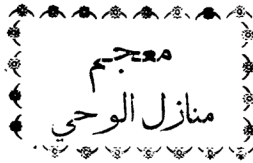 معجم
منازل الوحي